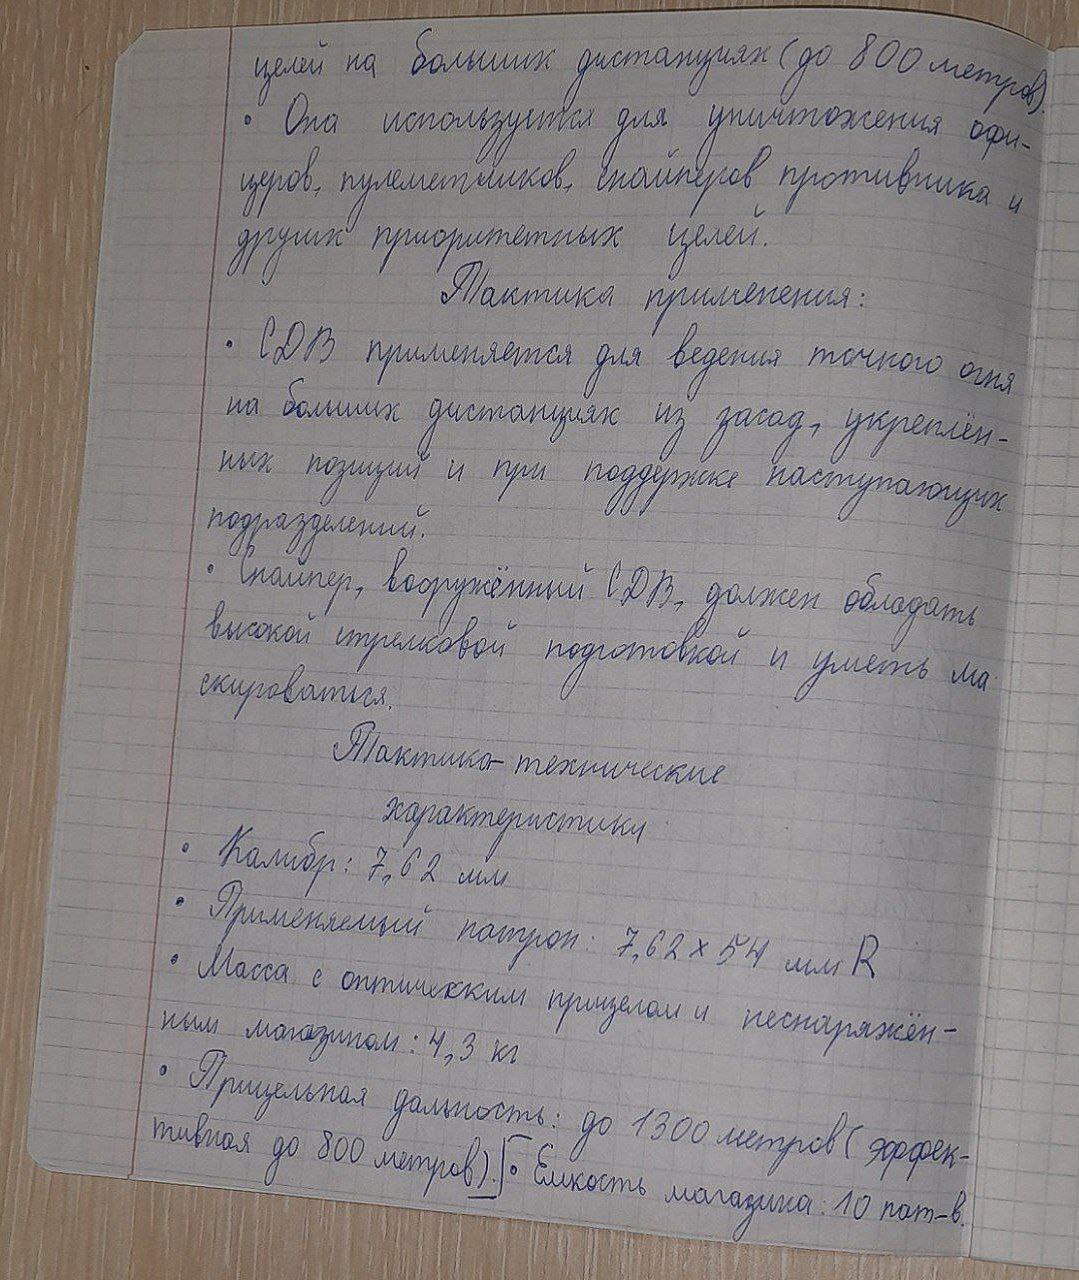 целей на больших дистанциях (до 800 метров).
• Она используется для уничтожения офи-
церов, пулеметчиков, снайперов противника и
других приоритетных целей.
Тактика применения:
• СДВ применяется для ведения точного огня
на больших дистанциях из засад, укреплён-
ных позиций и при поддержке наступающих
подразделений.
• Снайпер, вооружённый СДВ, должен обладать
высокой стрелковой подготовкой и уметь ма
скироваться.
Тактико-технические
характеристики
• Калибр: 7,62 мм
• Применяемый патрон: 7,62×54 мм R
• Масса с оптическим прицелом и неснаряжён-
ным магазином: 4,3 кг
• Прицельная дальность: до 1300 метров (эффек-
тивная до 800 метров). • Емкость магазина: 10 пат-в.